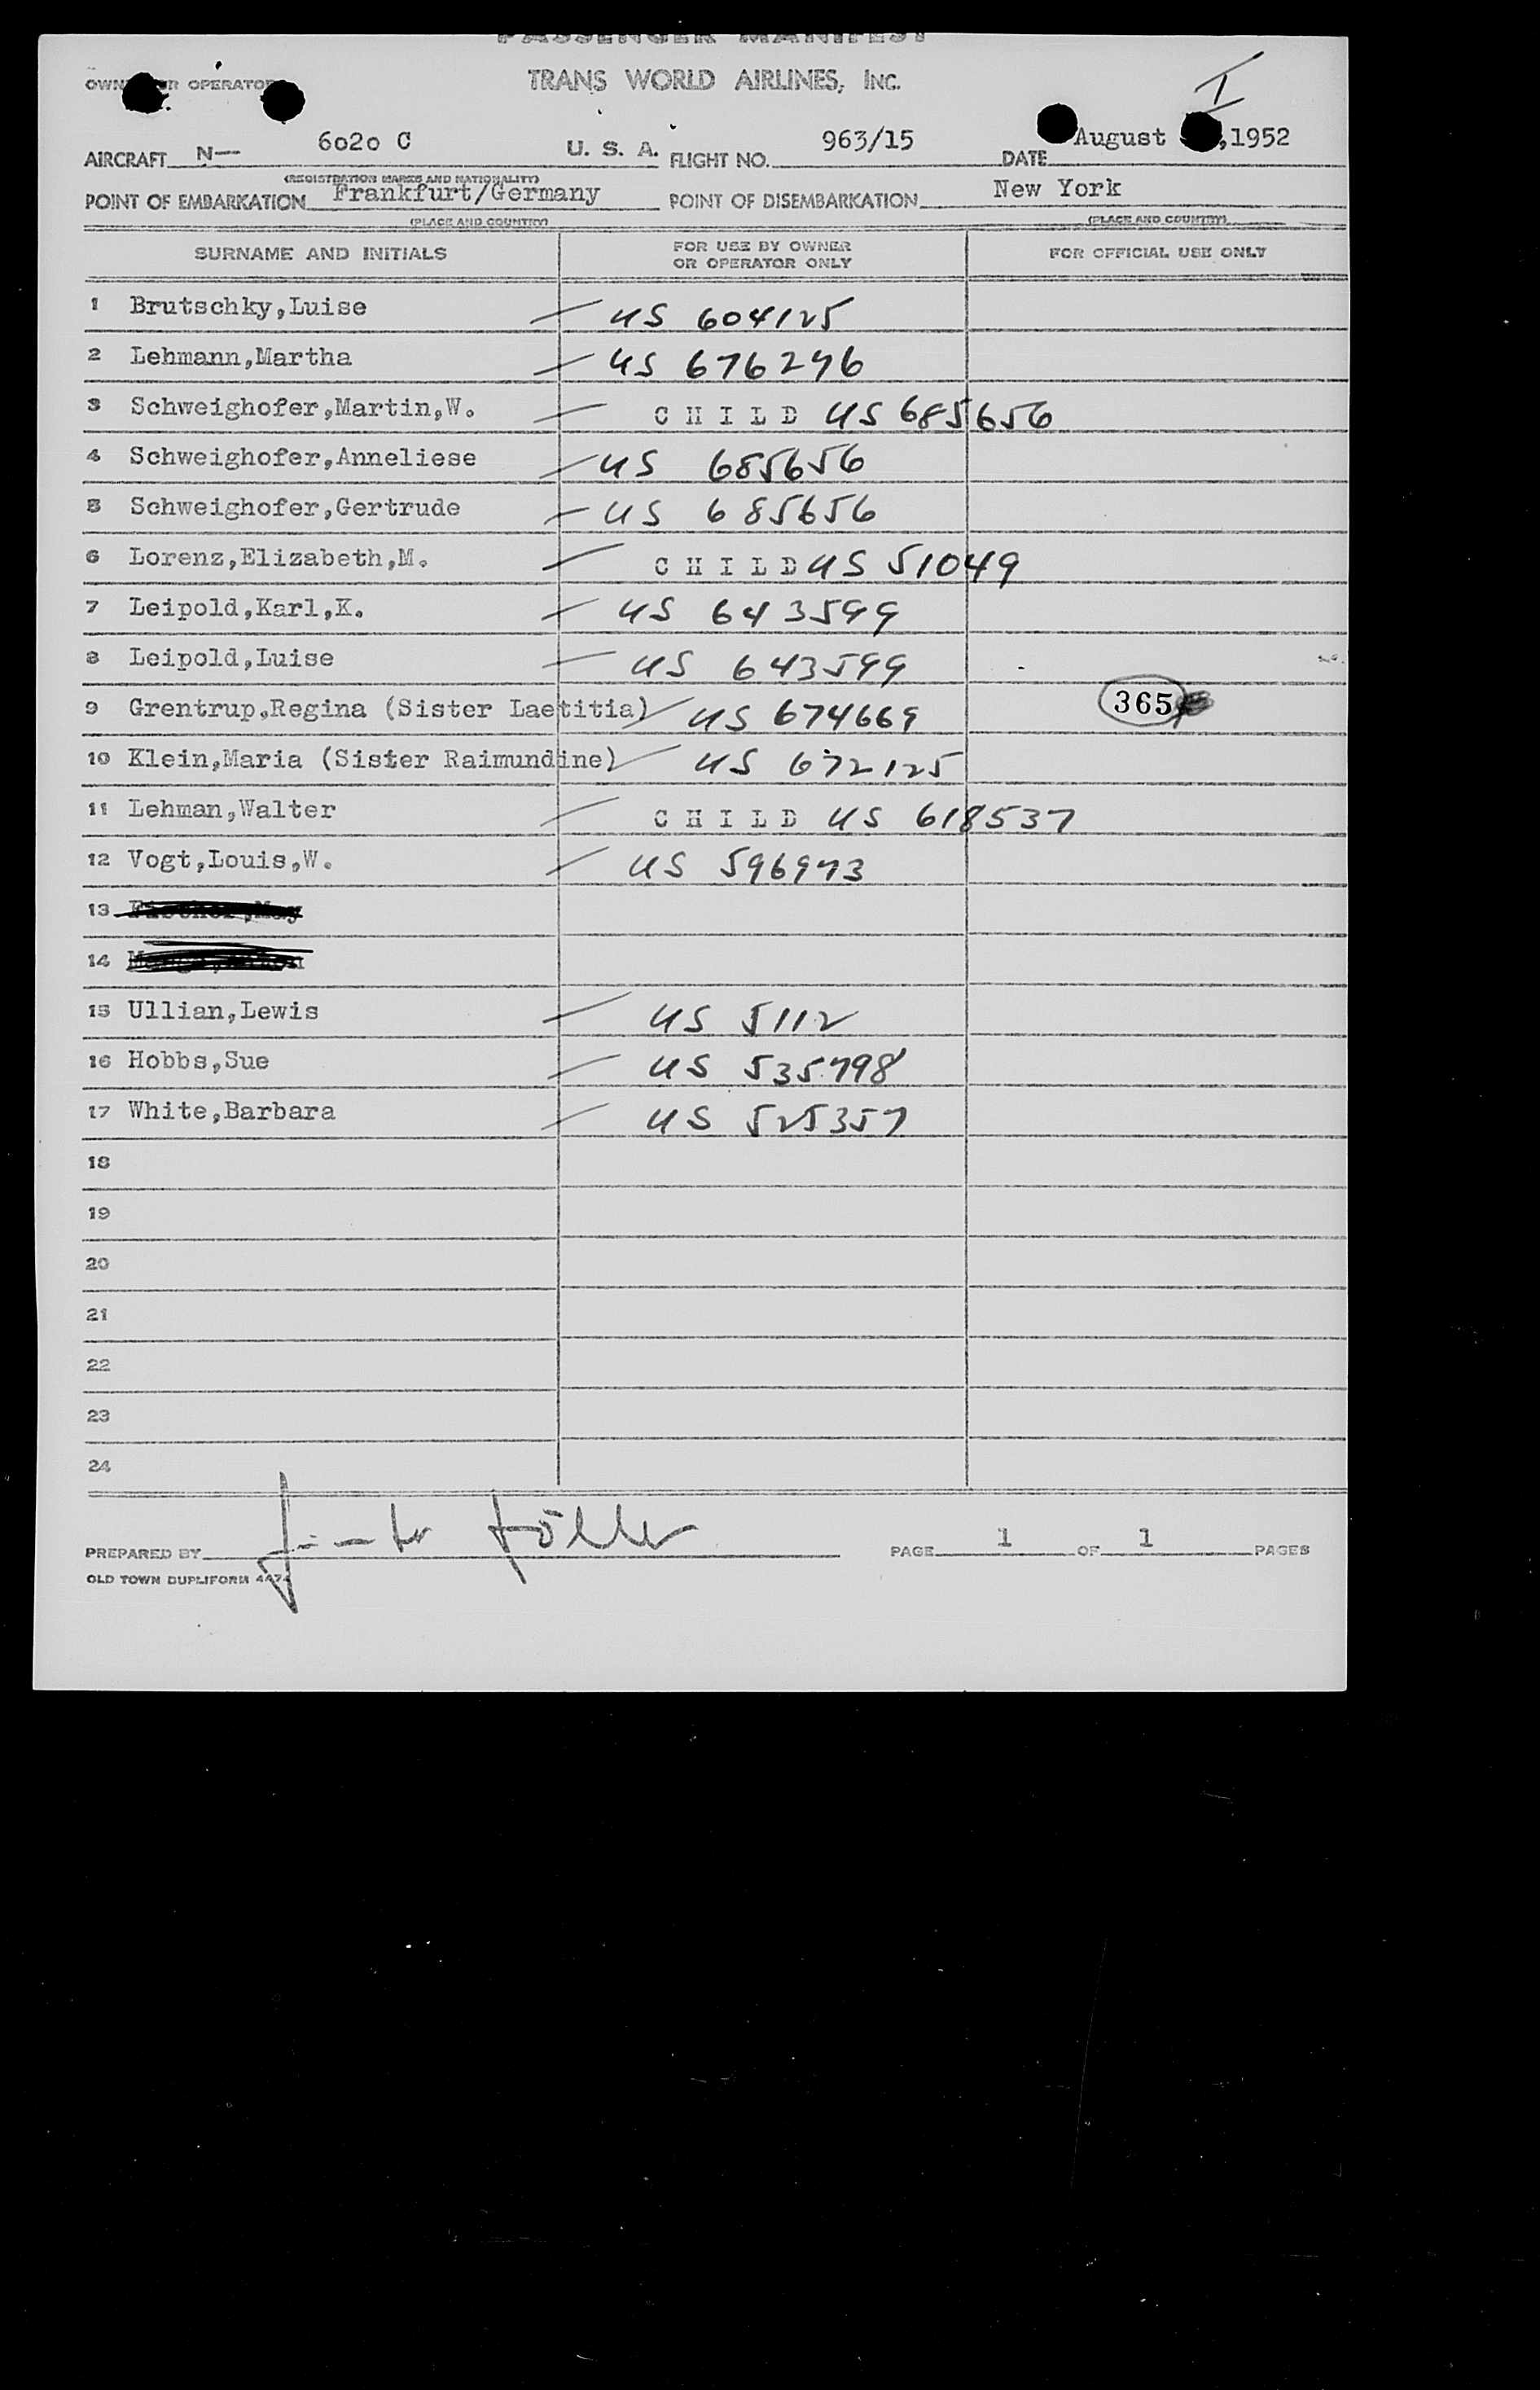 PASSENGER MANIFEST
OWNER OR OPERATOR TRANS WORLD AIRLINES, INC.
I
AIRCRAFT N— 6020 C U. S. A. FLIGHT NO. 963/15 DATE August ,1952
(REGISTRATION MARKS AND NATIONALITY)
POINT OF EMBARKATION Frankfurt/Germany POINT OF DISEMBARKATION New York
(PLACE AND COUNTRY) (PLACE AND COUNTRY)
SURNAME AND INITIALS FOR USE BY OWNER OR OPERATOR ONLY FOR OFFICIAL USE ONLY
1 Brutschky,Luise US 604125
2 Lehmann,Martha US 676246
3 Schweighofer,Martin,W. C H I L D US 685656
4 Schweighofer,Anneliese US 685656
5 Schweighofer,Gertrude US 685656
6 Lorenz,Elizabeth,M. C H I L D US 51049
7 Leipold,Karl,K. US 643599
8 Leipold,Luise US 643599
9 Grentrup,Regina (Sister Laetitia) US 674669 365
10 Klein,Maria (Sister Raimundine) US 672125
11 Lehman,Walter C H I L D US 618537
12 Vogt,Louis,W. US 596973
13
14
15 Ullian,Lewis US 5112
16 Hobbs,Sue US 535798
17 White,Barbara US 525357
18
19
20
21
22
23
24
PREPARED BY PAGE 1 OF 1 PAGES
OLD TOWN DUPLIFORM